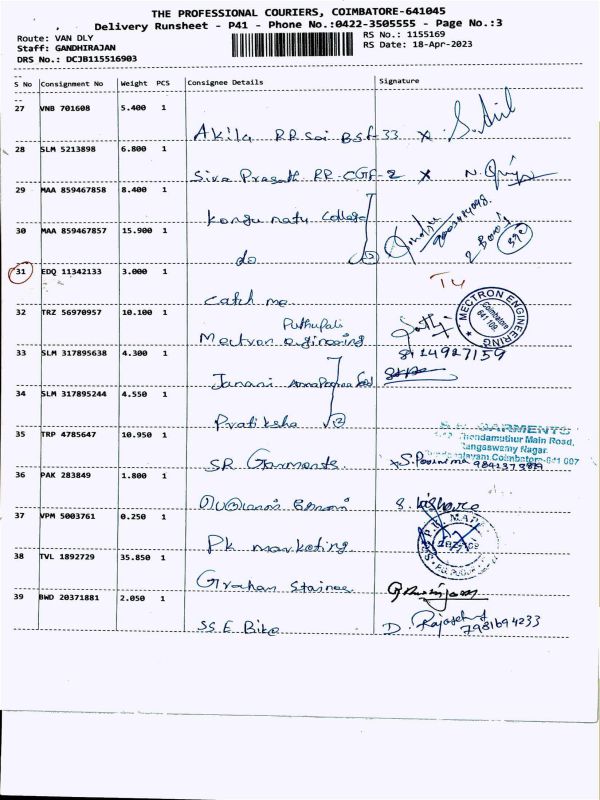 THE PROFESSIONAL COURIERS, COIMBATORE-641045
Delivery Runsheet - P41 - Phone No.:0422-3505555 - Page No.:3
Route: VAN DLY
Staff: GANDHIRAJAN
DRS No.: DCJB115516903
RS No.: 1155169
RS Date: 18-Apr-2023
S No Consignment No Weight PCS Consignee Details Signature
27 VNB 701608 5.400 1
Akila RR Sai BSF-33 x
28 SLM 5213898 6.800 1
Siva Prasath RR CGF-2 x
29 MAA 859467858 8.400 1
Kongu natu College
30 MAA 859467857 15.900 1
do
31 EDQ 11342133 3.000 1
Catch me
32 TRZ 56970957 10.100 1
Puthupali
Mectron engineering
MECTRON ENGINEERING
Coimbatore
641 108
33 SLM 317895638 4.300 1
8114927159
Janani
34 SLM 317895244 4.550 1
Pratiksha
35 TRP 4785647 10.950 1
GARMENTS
Thondamuthur Main Road,
Rangaswamy Nagar,
Coimbatore-641 007
SR Garments
36 PAK 283849 1.800 1
S. Kishore
37 VPM 5003761 0.250 1
PK marketing
38 TVL 1892729 35.850 1
Graham Staines
39 BWD 20371881 2.050 1
SS E Bike
7981694233